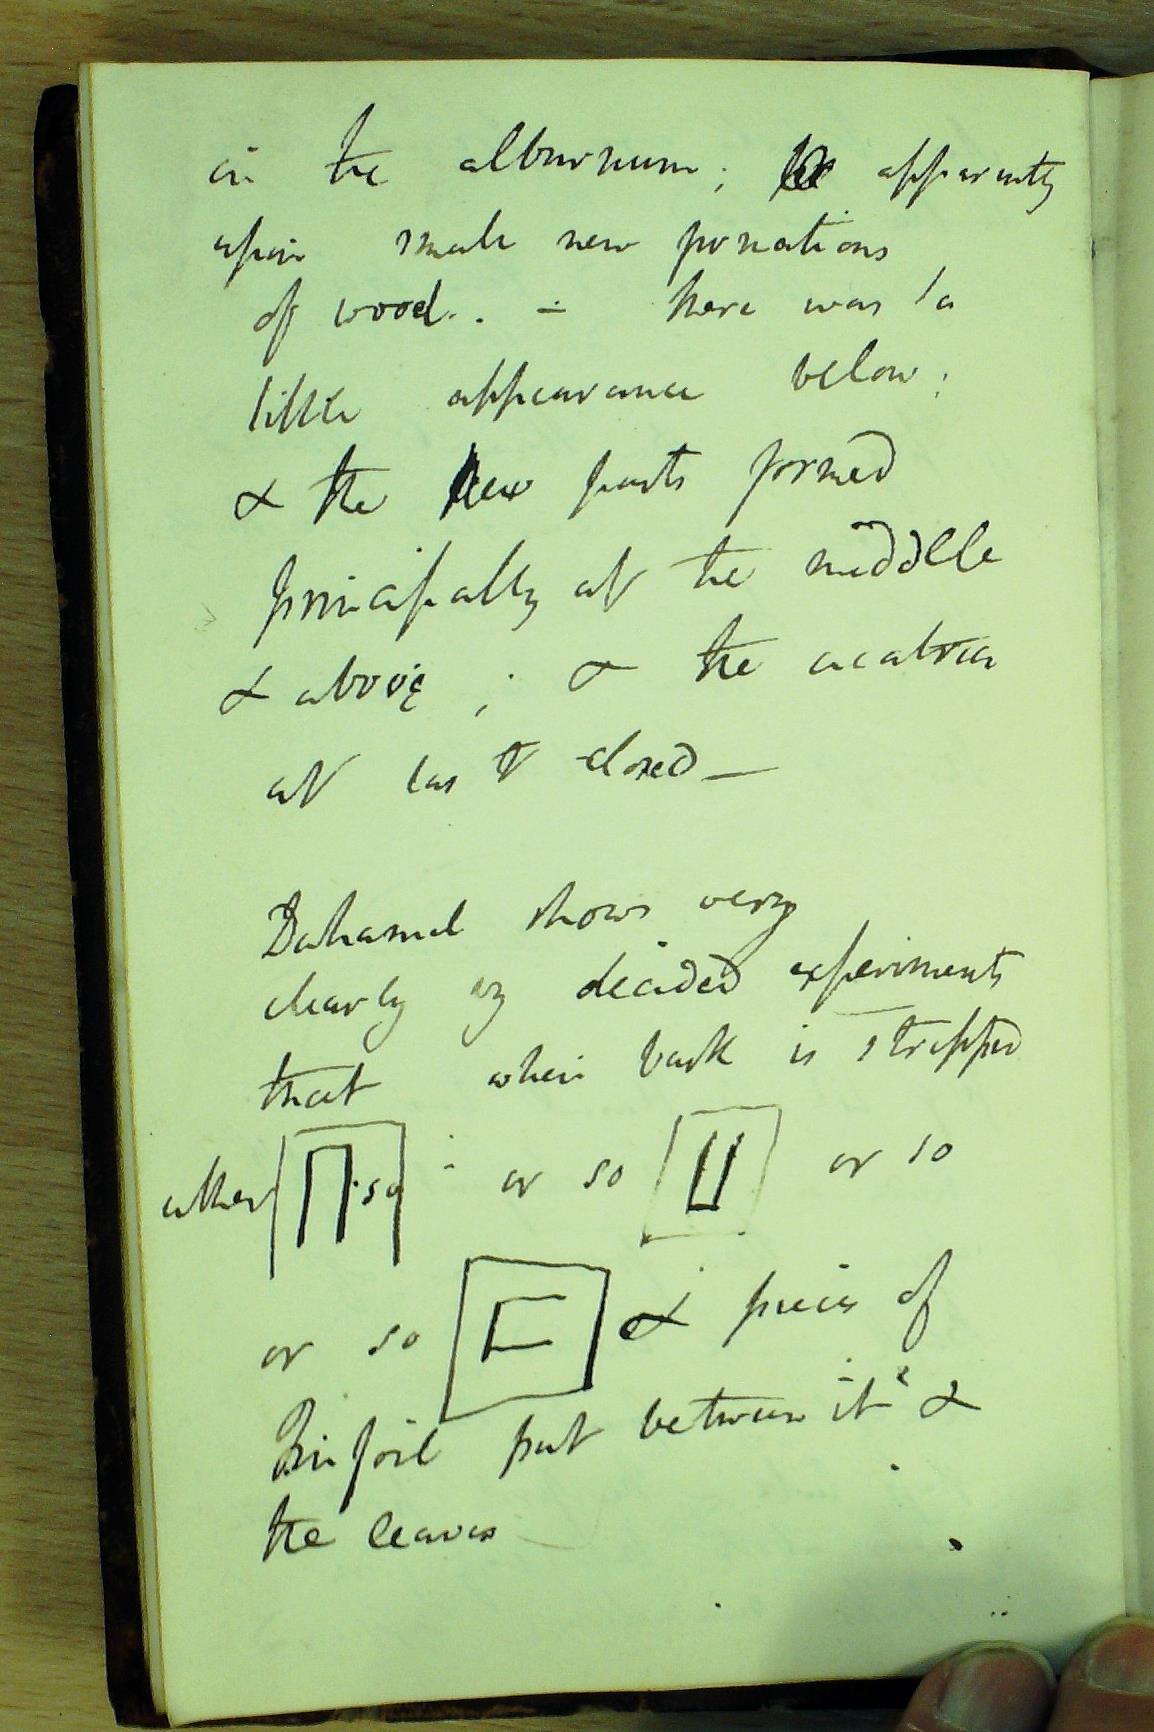 in the alburnum; apparently
upon small new formations
of wood.. - there was
little appearance below;
& the new parts formed
principally at the middle
& above; & the cicatrice
at last closed —
Duhamel shows very
clearly by decided experiments
that when bark is stripped
either so or so or so
or so & pieces of
Tinfoil put between it &
the leaves